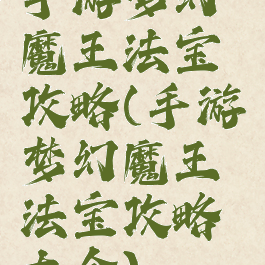 手游梦幻
魔王法宝
攻略(手游
梦幻魔王
法宝攻略
大全)